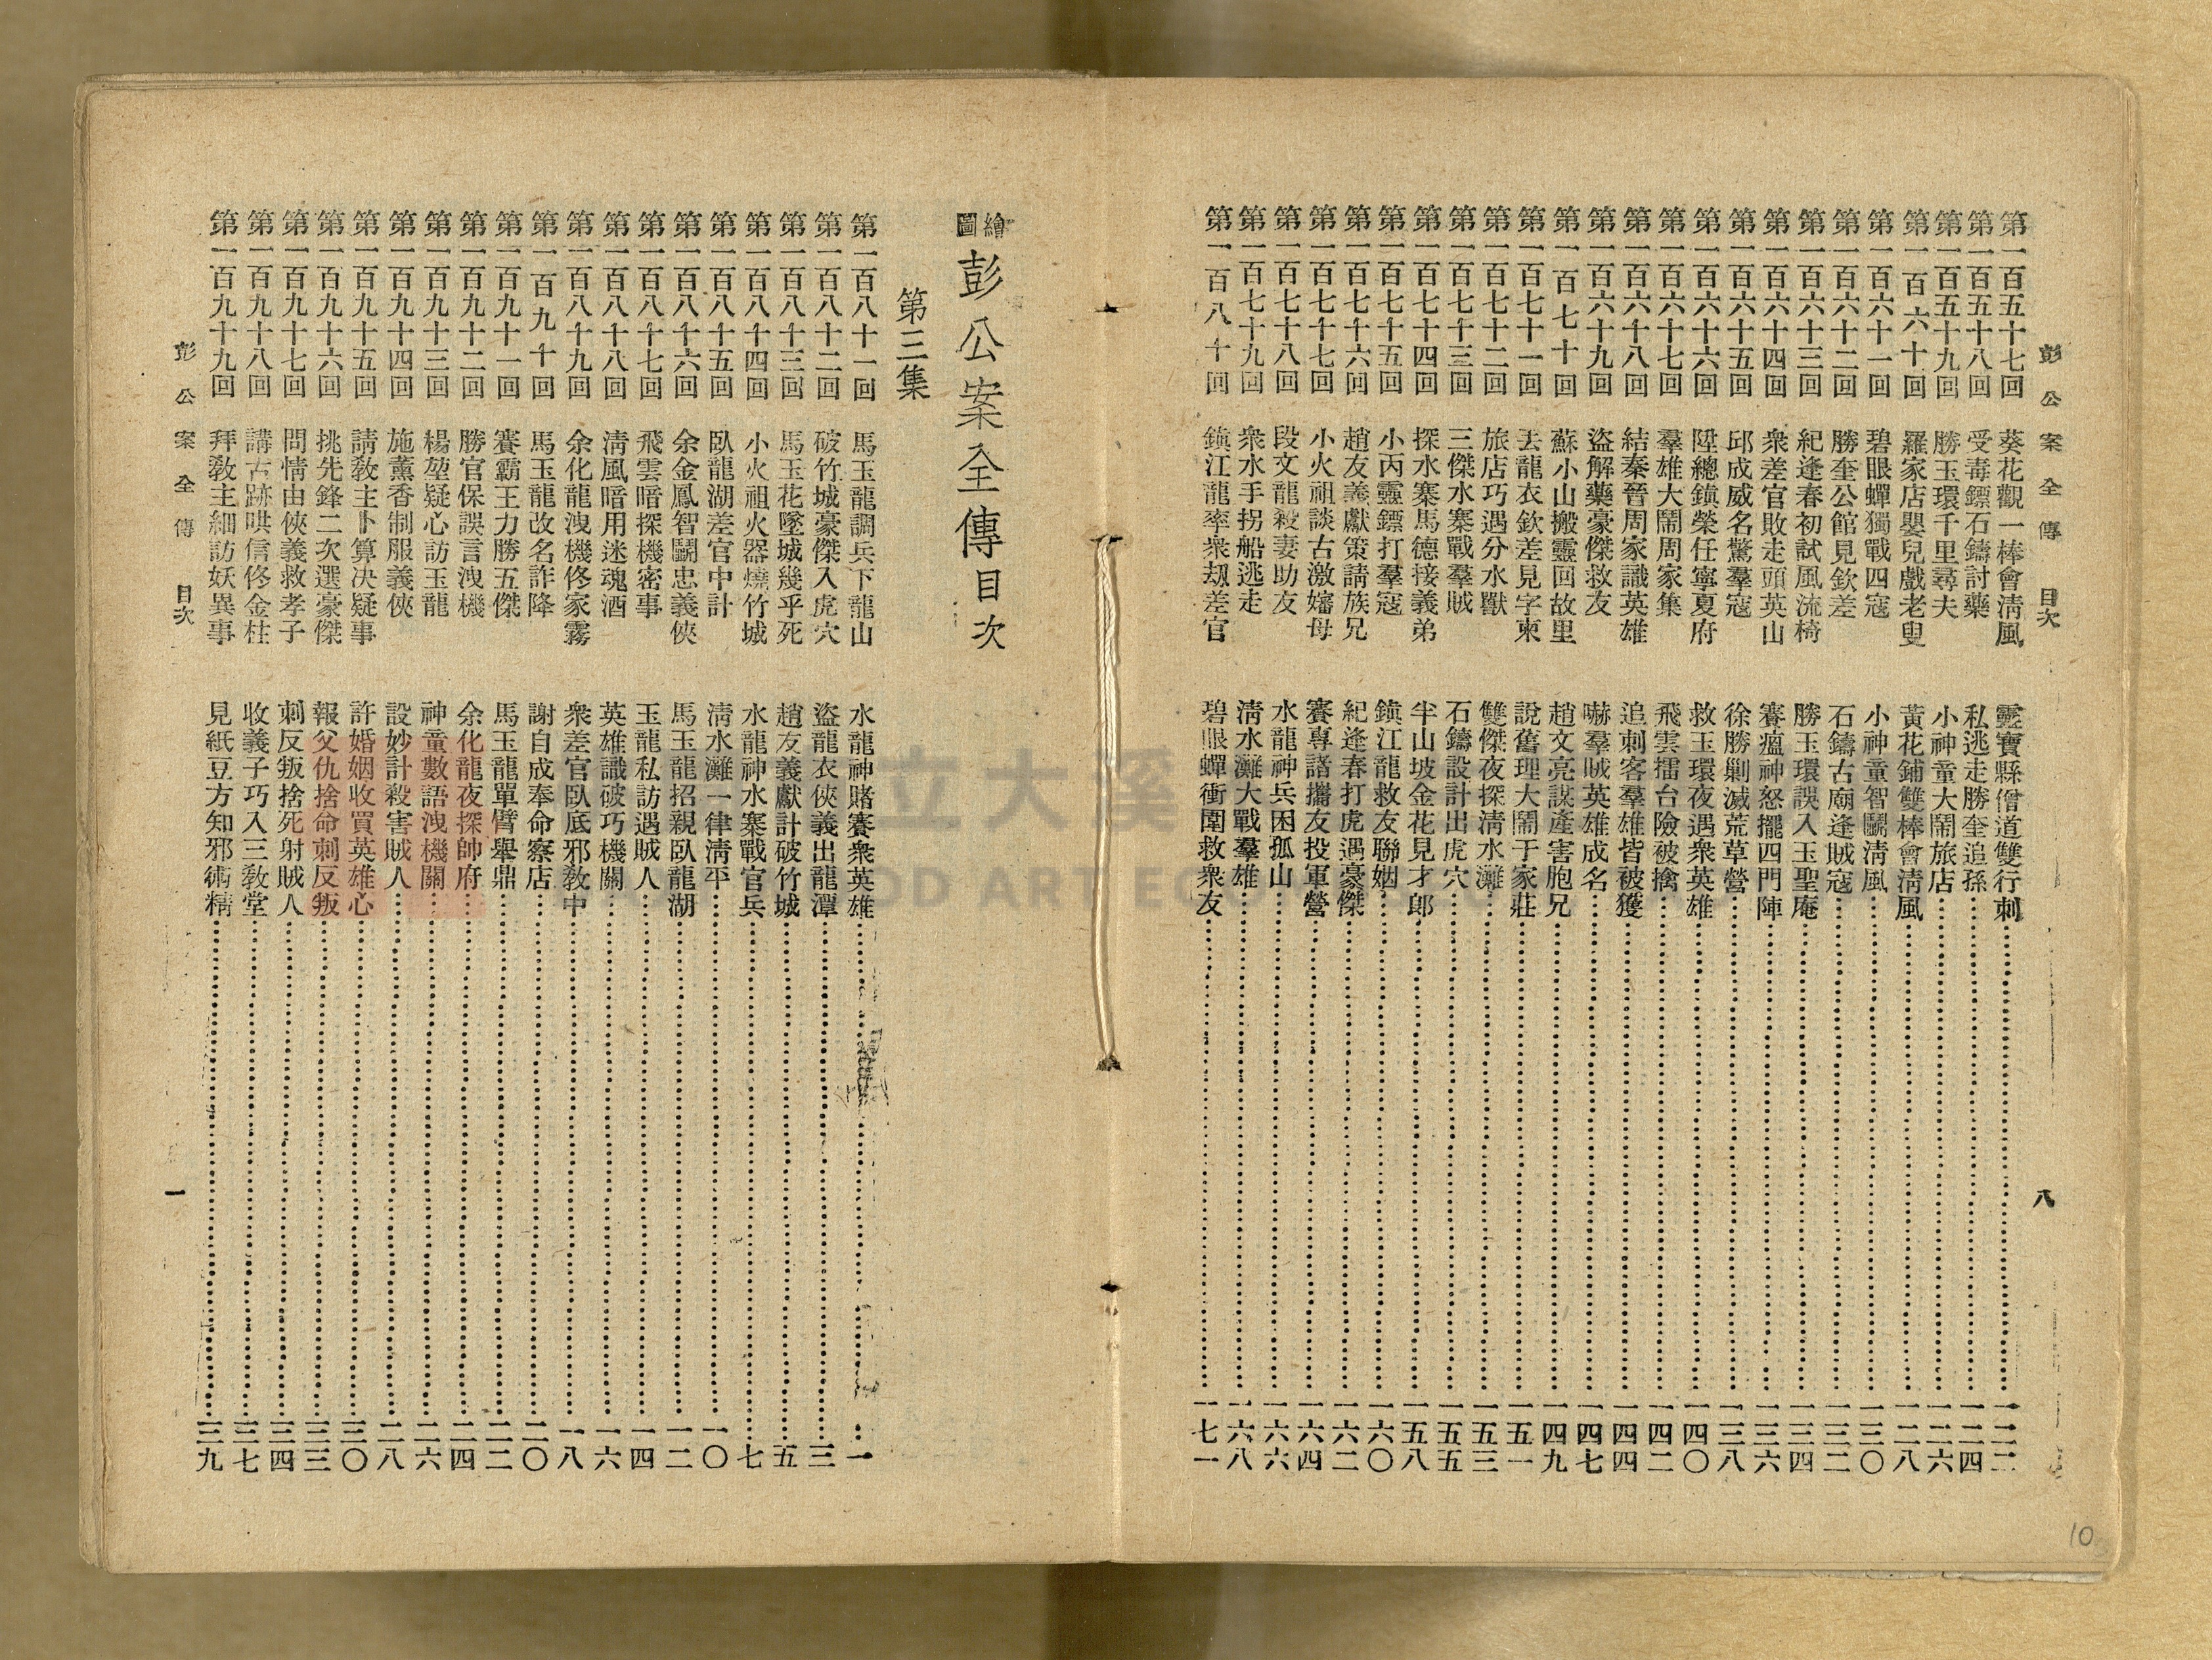 彭公案全傳 目次 八
第一百五十七回 葵花觀一棒會淸風 靈寶縣僧道雙行刺 一二二
第一百五十八回 受毒鏢石鑄討藥 私逃走勝奎追孫 一二四
第一百五十九回 勝玉環千里尋夫 小神童大鬧旅店 一二六
第一百六十回 羅家店嬰兒戲老叟 黃花鋪雙棒會淸風 一二八
第一百六十一回 碧眼蟬獨戰四寇 小神童智鬭淸風 一三〇
第一百六十二回 勝奎公館見欽差 石鑄古廟逢賊寇 一三二
第一百六十三回 紀逢春初試風流椅 勝玉環誤入玉聖庵 一三四
第一百六十四回 衆差官敗走頭英山 賽瘟神怒擺四門陣 一三六
第一百六十五回 邱成威名驚羣寇 徐勝剿滅荒草營 一三八
第一百六十六回 陞總鎭榮任寧夏府 救玉環夜遇衆英雄 一四〇
第一百六十七回 羣雄大鬧周家集 飛雲擂台險被擒 一四二
第一百六十八回 結秦晉周家識英雄 追刺客羣雄皆被獲 一四四
第一百六十九回 盜解藥豪傑救友 嚇羣賊英雄成名 一四七
第一百七十回 蘇小山搬靈回故里 趙文亮謀產害胞兄 一四九
第一百七十一回 丟龍衣欽差見字柬 說舊理大鬧于家莊 一五一
第一百七十二回 旅店巧遇分水獸 雙傑夜探淸水灘 一五三
第一百七十三回 三傑水寨戰羣賊 石鑄設計出虎穴 一五五
第一百七十四回 探水寨馬德接義弟 半山坡金花見才郎 一五八
第一百七十五回 小丙靈鏢打羣寇 鎭江龍救友聯姻 一六〇
第一百七十六回 趙友義獻策請族兄 紀逢春打虎遇豪傑 一六二
第一百七十七回 小火祖談古激嬸母 賽專諸攜友投軍營 一六四
第一百七十八回 段文龍殺妻助友 水龍神兵困孤山 一六六
第一百七十九回 衆水手拐船逃走 淸水灘大戰羣雄 一六八
第一百八十回 鎭江龍率衆刼差官 碧眼蟬衝圍救衆友 一七一
繪圖 彭公案全傳目次
第三集
第一百八十一回 馬玉龍調兵下龍山 水龍神賭賽衆英雄 一
第一百八十二回 破竹城豪傑入虎穴 盜龍衣俠義出龍潭 三
第一百八十三回 馬玉花墜城幾乎死 趙友義獻計破竹城 五
第一百八十四回 小火祖火器燒竹城 水龍神水寨戰官兵 七
第一百八十五回 臥龍湖差官中計 淸水灘一律淸平 一〇
第一百八十六回 余金鳳智鬭忠義俠 馬玉龍招親臥龍湖 一二
第一百八十七回 飛雲暗探機密事 玉龍私訪遇賊人 一四
第一百八十八回 淸風暗用迷魂酒 英雄識破巧機關 一六
第一百八十九回 余化龍洩機佟家霧 衆差官臥底邪敎中 一八
第一百九十回 馬玉龍改名詐降 謝自成奉命察店 二〇
第一百九十一回 賽霸王力勝五傑 馬玉龍單臂舉鼎 二二
第一百九十二回 勝官保誤言洩機 余化龍夜探帥府 二四
第一百九十三回 楊堃疑心訪玉龍 神童數語洩機關 二六
第一百九十四回 施薰香制服義俠 設妙計殺害賊人 二八
第一百九十五回 請敎主卜算決疑事 許婚姻收買英雄心 三〇
第一百九十六回 挑先鋒二次選豪傑 報父仇捨命刺反叛 三三
第一百九十七回 問情由俠義救孝子 刺反叛捨死射賊人 三四
第一百九十八回 講古跡哄信佟金柱 收義子巧入三敎堂 三七
第一百九十九回 拜敎主細訪妖異事 見紙豆方知邪術精 三九
彭公案全傳 目次 一
立大溪
10